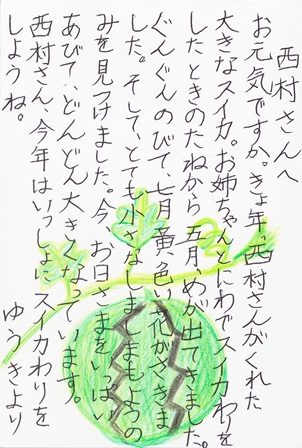 西村さんへ
お元気ですか。きょ年、西村さんがくれた
大きなスイカ。お姉ちゃんとにわでスイカわりを
したときのたねから、五月、めが出てきました。
ぐんぐんのびて、七月、黄色い花がさきま
した。そして、とても小さなしましまもようの
みを見つけました。今、お日さまをいっぱい
あびて、どんどん大きくなっています。
西村さん、今年はいっしょにスイカわりを
しようね。
ゆうきより